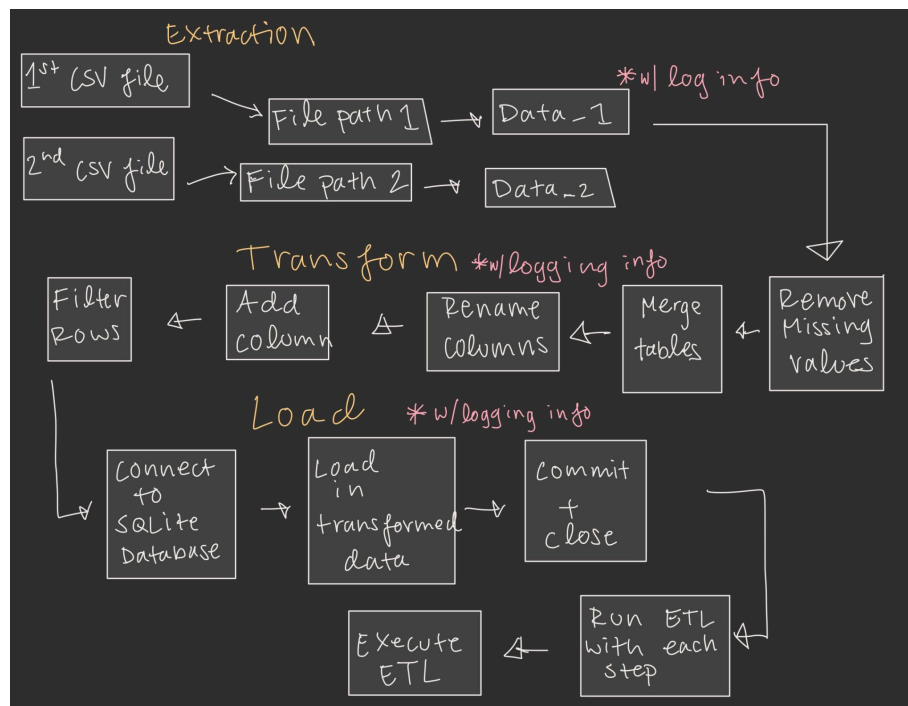 Extraction
1st CSV file
* w/ log info
File path 1
Data_1
2nd CSV file
File path 2
Data_2
Transform
* w/logging info
Remove
Missing
values
Merge
tables
Rename
columns
Add
column
Filter
Rows
Load
* w/logging info
Connect
to
SQLite
Database
Load
in
transformed
data
Commit
+
close
Run ETL
with each
step
Execute
ETL